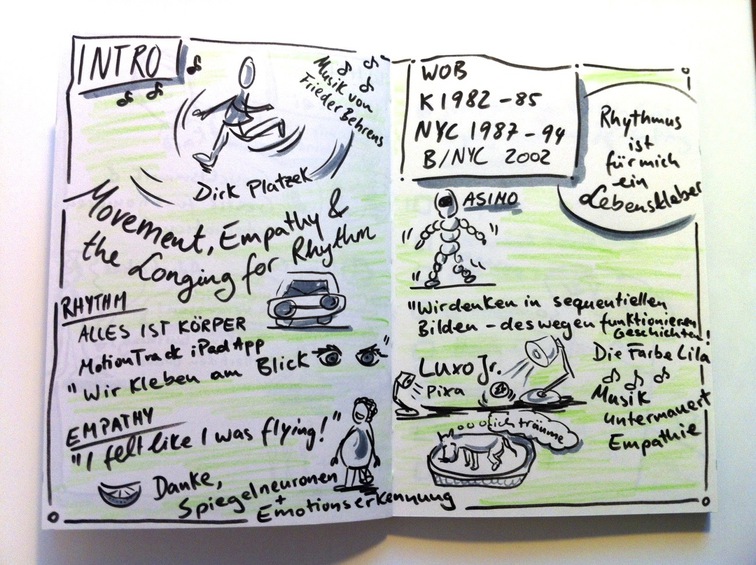 INTRO
Musik von
Frieder Behrens
Dirk Platzek
Movement, Empathy &
the Longing for Rhythm
RHYTHM
ALLES IST KÖRPER
MotionTrack iPad App
"Wir kleben am Blick"
EMPATHY
"I felt like I was flying!"
Danke,
Spiegelneuronen
+
Emotionserkennung
WOB
K 1982 - 85
NYC 1987 - 94
B/NYC 2002
Rhythmus
ist
für mich
ein
Lebenskleber
ASIMO
"Wir denken in sequentiellen
Bilden - deswegen funktionieren
Geschichten!
Luxo Jr.
Pixa
Die Farbe Lila
Musik
untermauert
Empathie
ich träume